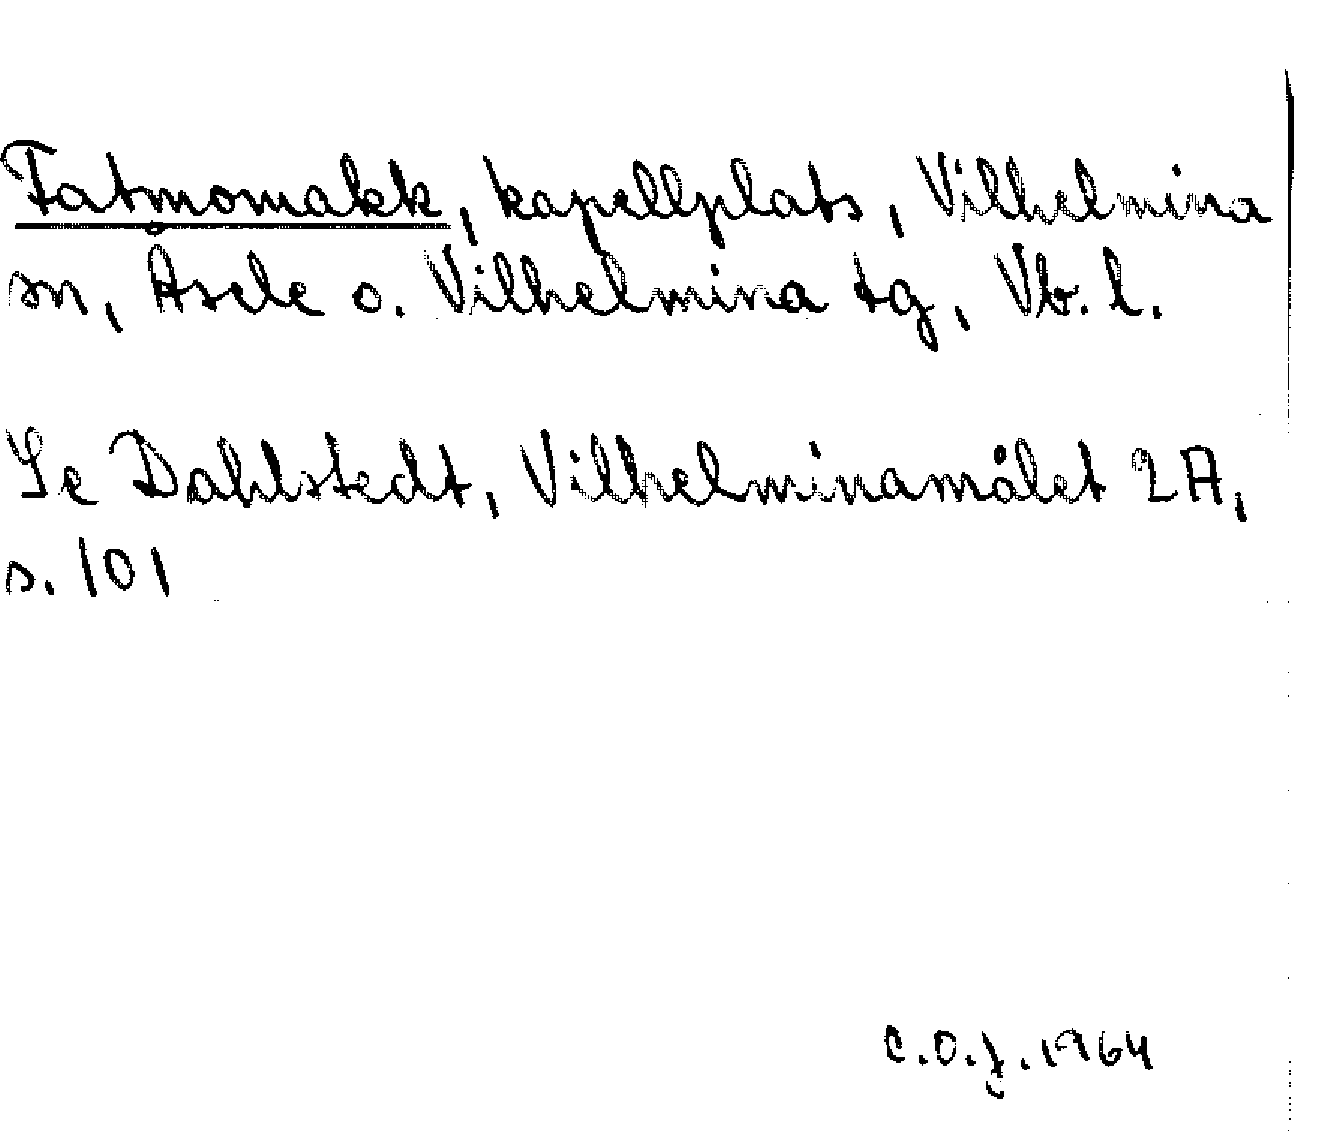 Fatmomakk, kapellplats, Vilhelmina
sn, Åsele o. Vilhelmina tg, Vb. l.
Se Dahlstedt, Vilhelminamålet 2A,
s. 101
C.O.J. 1964